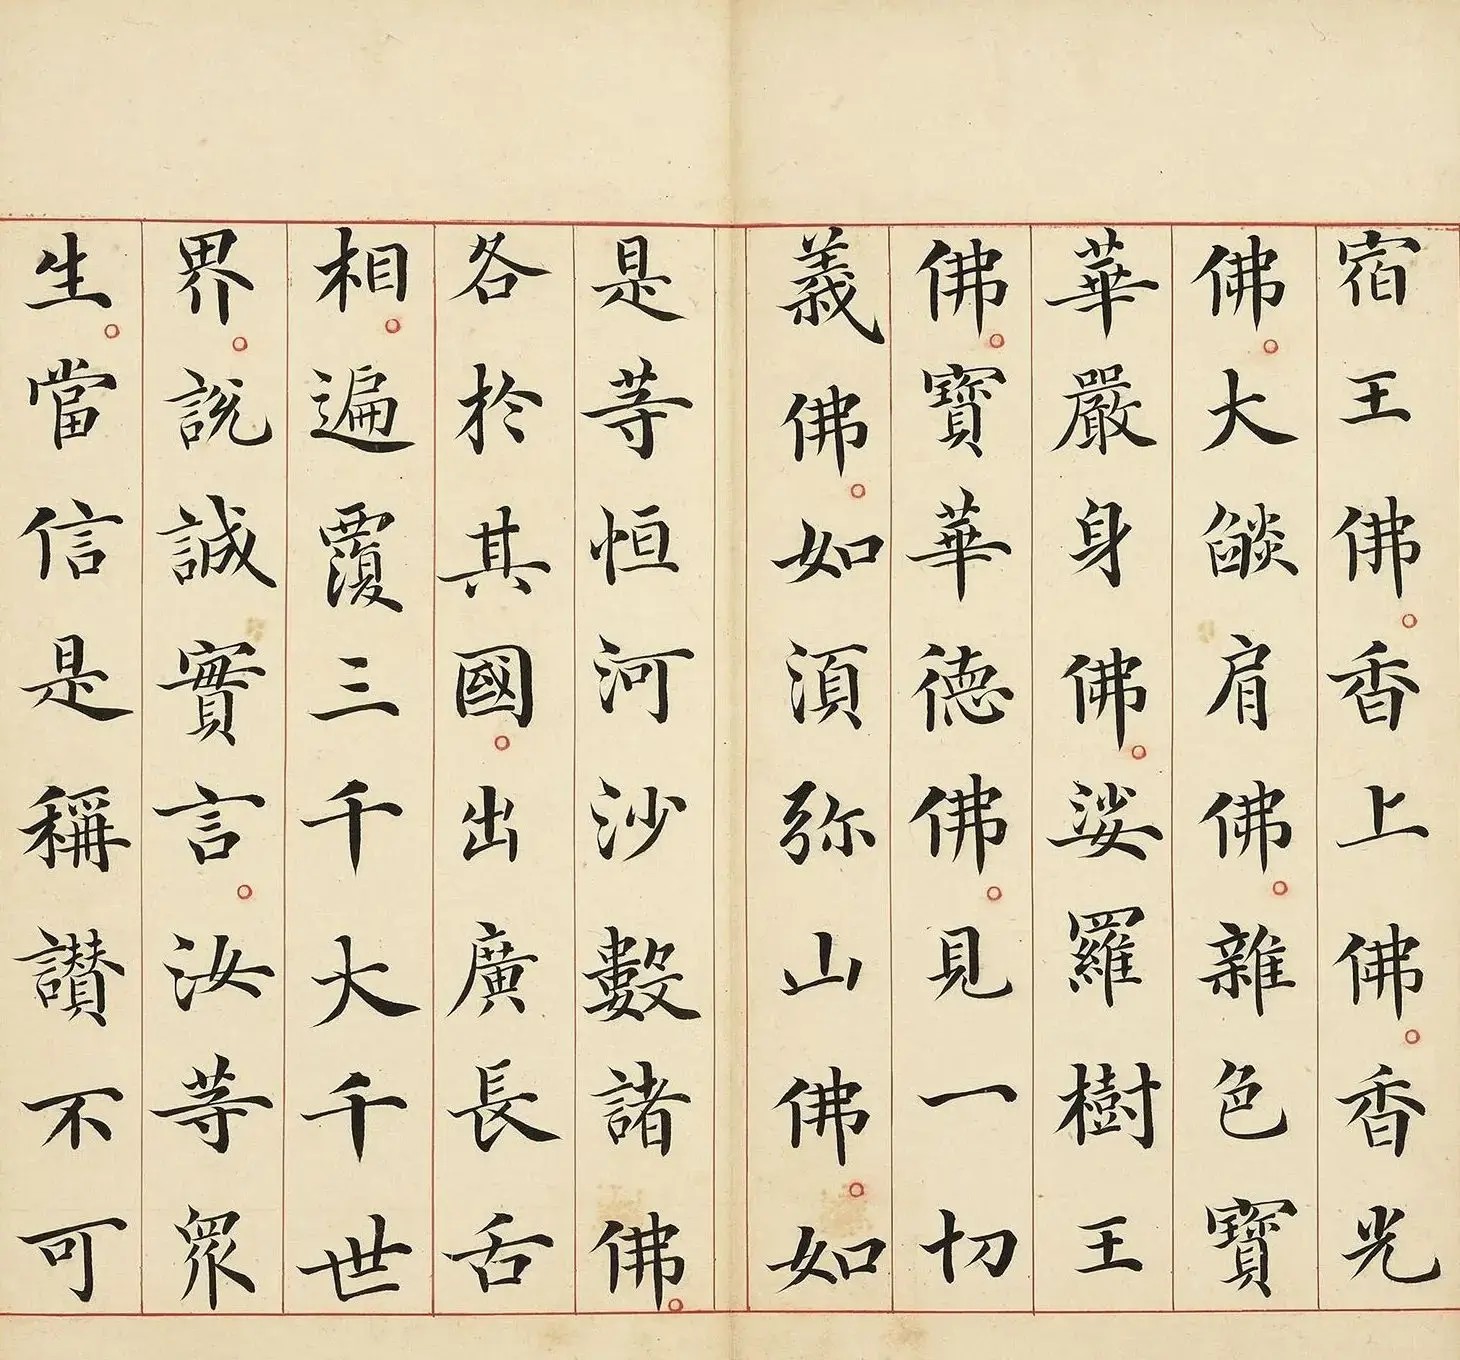 宿王佛。香上佛。香光
佛。大燄肩佛。雜色寶
華嚴身佛。娑羅樹王
佛。寶華德佛。見一切
義佛。如須弥山佛。如
是等恒河沙數諸佛。
各於其國。出廣長舌
相。遍覆三千大千世
界。說誠實言。汝等衆
生。當信是稱讚不可